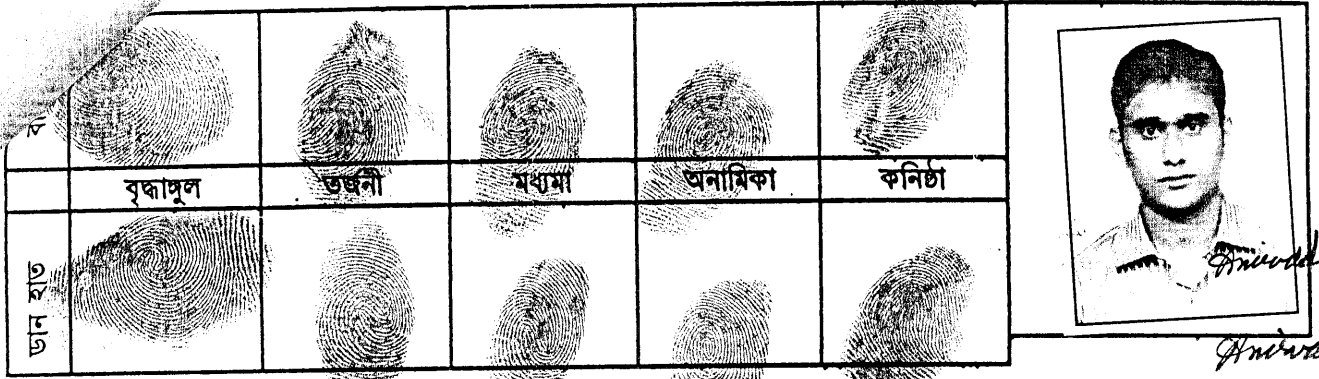 বৃদ্ধাঙ্গুল তর্জনী মধ্যমা অনামিকা কনিষ্ঠা
ডান হাত